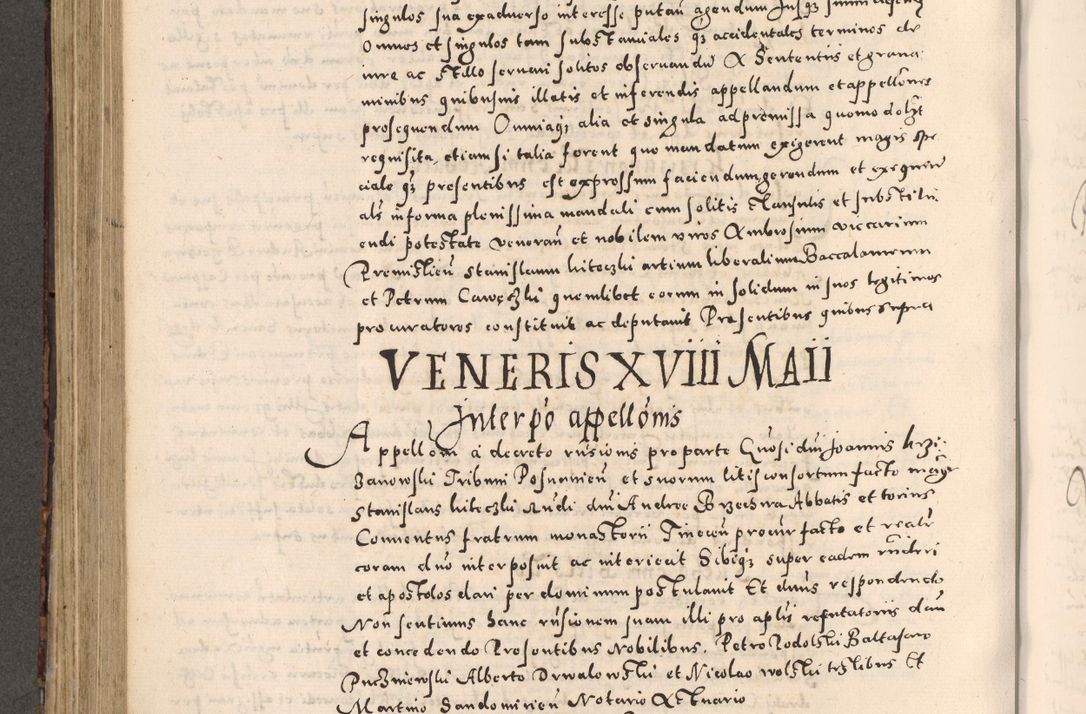 singulos sua exadverso interesse putan agendum Jusq
Omnes et singulos tam substanciales q3 accidentales terminos de
iure ac stillo servari solitos observandu A Sententiis et grava
minibus quibusuis illatis et inferendis appellandum et appellones
prosequendum Omniaq3 alia et singula ad premissa quomodolz
requisita, etiam si talia forent que mandatum exigerent magis spe
ciale q3 presentibus est expressum faciendum gerendum et exequen
als in forma plenissima mandati cum solitis clausulis et substitu
endi potestate veneran et nobilem viros Ambrosium viccarium
Premislien Stanislaum kiteczki artium liberalium Baccalaureum
et Petrum Cawęczki quemlibet eorum in solidum in suos legitimos
procuratores constituit ac deputavit Presentibus quibus supra
VENERIS XVIII MAII
Interpo appellonis
Appellom a decreto rusionis pro parte Gnosi dni Joannis krzi
zanowski Tribuni Posnanien et suorum litis consortum facto magr
Stanislaus kiteczki Rndi dni Andree Brzechwa Abbatis et totius
Conventus fratrum monasterii Tinecen procur facto et reali
coram dno interposuit ac interiecit Sibiq3 super eadem rnderi
et apostolos dari per dominum postulavit Et dnus respondendo
Non sentiens hanc rusionem suam illi pro aplis refutatoriis dan
et concedendo Presentibus Nobilibus. Petro Rodolski Baltasaro
Puczniewski Alberto Drwalowski et Nicolao wolski testibus Et
Martino Sandomirien Notario Actuario